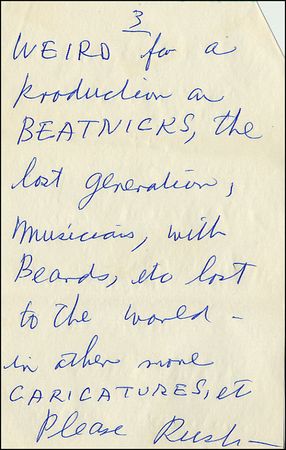 3
WEIRD for a
production on
BEATNICKS, the
lost generation,
Musicians, with
Beards, etc lost
to the world –
in other more
CARICATURES, et
Please Rush –